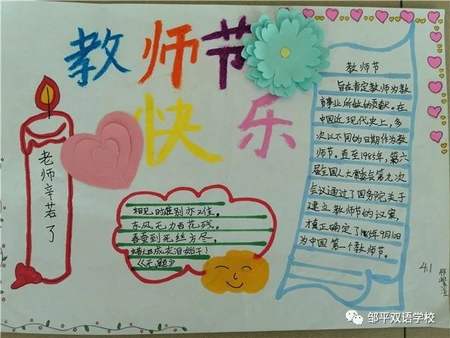 教师节
快乐
老师辛苦了
相见时难别亦难,
东风无力百花残。
春蚕到死丝方尽,
蜡炬成灰泪始干!
《无题》
教师节
旨在肯定教师为教
育事业所做的贡献。在
中国近现代史上,多
次以不同的日期作为教
师节。直至1985年,第六
届全国人大常委会第九次
会议通过了国务院关于
建立教师节的议案,
真正确定了1985年9月10日
为中国第一个教师节。
4.1
邹平双语学校